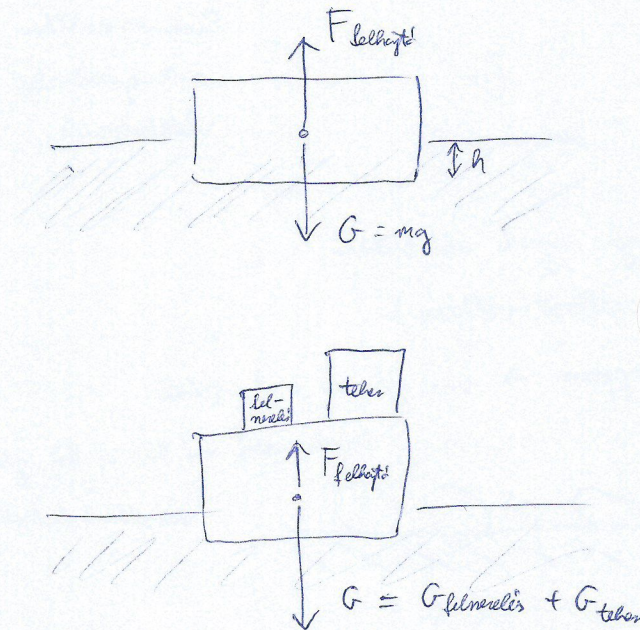 F felhajtó
h
G = mg
fel-
szerelés
teher
F felhajtó
G = G felszerelés + G teher